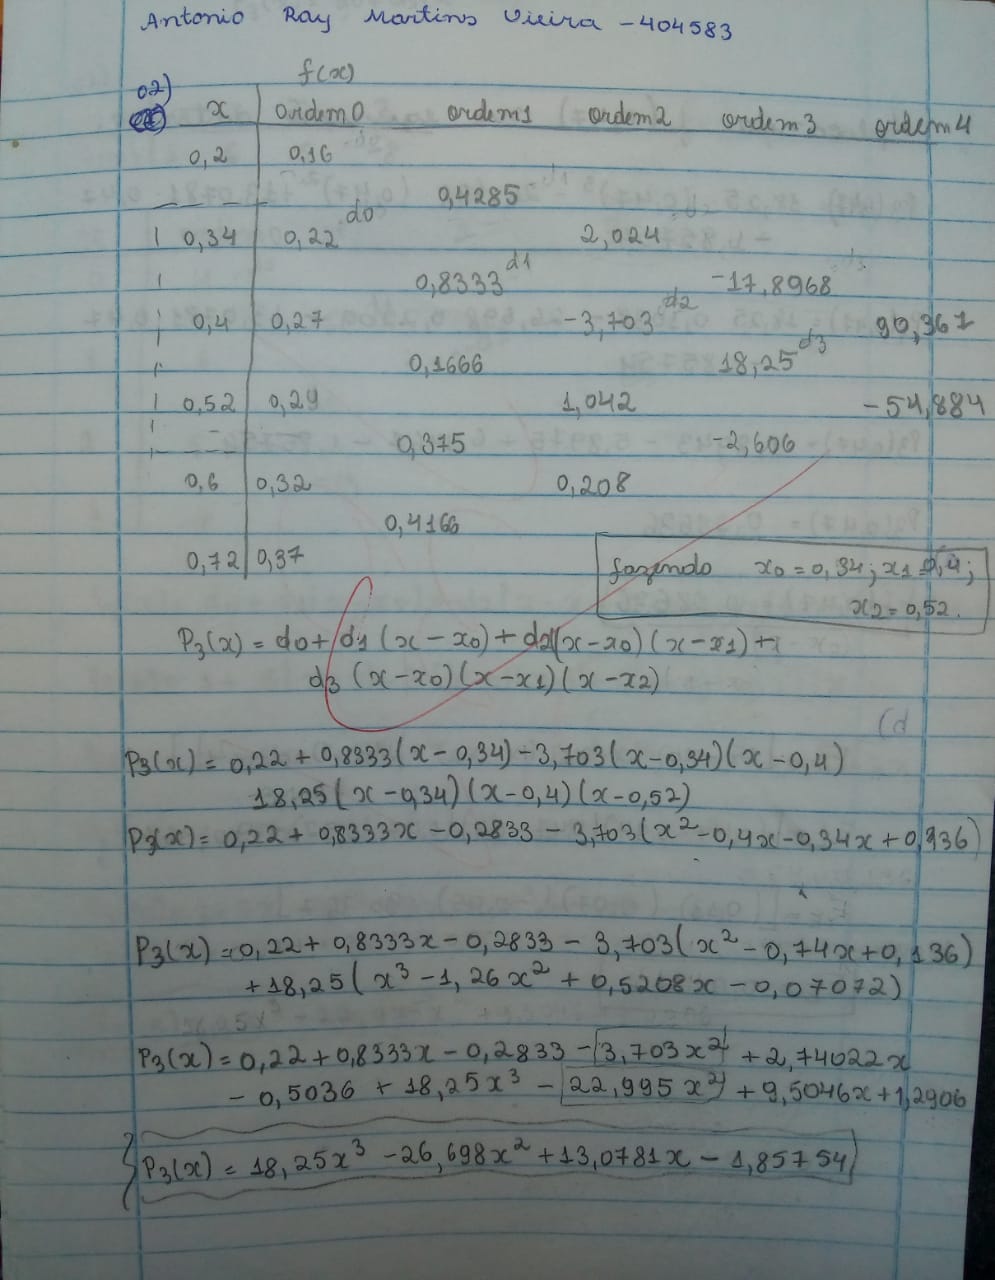 Antonio Ray Martins Vieira - 404583
f(x)
02)
x ordem 0 ordem 1 ordem 2 ordem 3 ordem 4
0,2 0,16
0,4285
0,34 0,22 d0 2,024
0,8333 d1 -17,8968
0,4 0,27 -3,703 d2 90,367
0,1666 18,25 d3
0,52 0,29 1,042 -54,884
0,375 -2,606
0,6 0,32 0,208
0,4166
0,72 0,37
fazendo x0 = 0,34; x1 = 0,4;
x2 = 0,52.
P3(x) = d0 + d1 (x - x0) + d2 (x - x0) (x - x1) +
d3 (x - x0) (x - x1) (x - x2)
P3(x) = 0,22 + 0,8333 (x - 0,34) - 3,703 (x - 0,34) (x - 0,4)
18,25 (x - 0,34) (x - 0,4) (x - 0,52)
P3(x) = 0,22 + 0,8333x - 0,2833 - 3,703 (x² - 0,4x - 0,34x + 0,136)
P3(x) = 0,22 + 0,8333x - 0,2833 - 3,703 (x² - 0,74x + 0,136)
+ 18,25 (x³ - 1,26x² + 0,5208x - 0,07072)
P3(x) = 0,22 + 0,8333x - 0,2833 - 3,703x² + 2,74022x
- 0,5036 + 18,25x³ - 22,995x² + 9,5046x + 1,2906
P3(x) = 18,25x³ - 26,698x² + 13,0781x - 1,85754